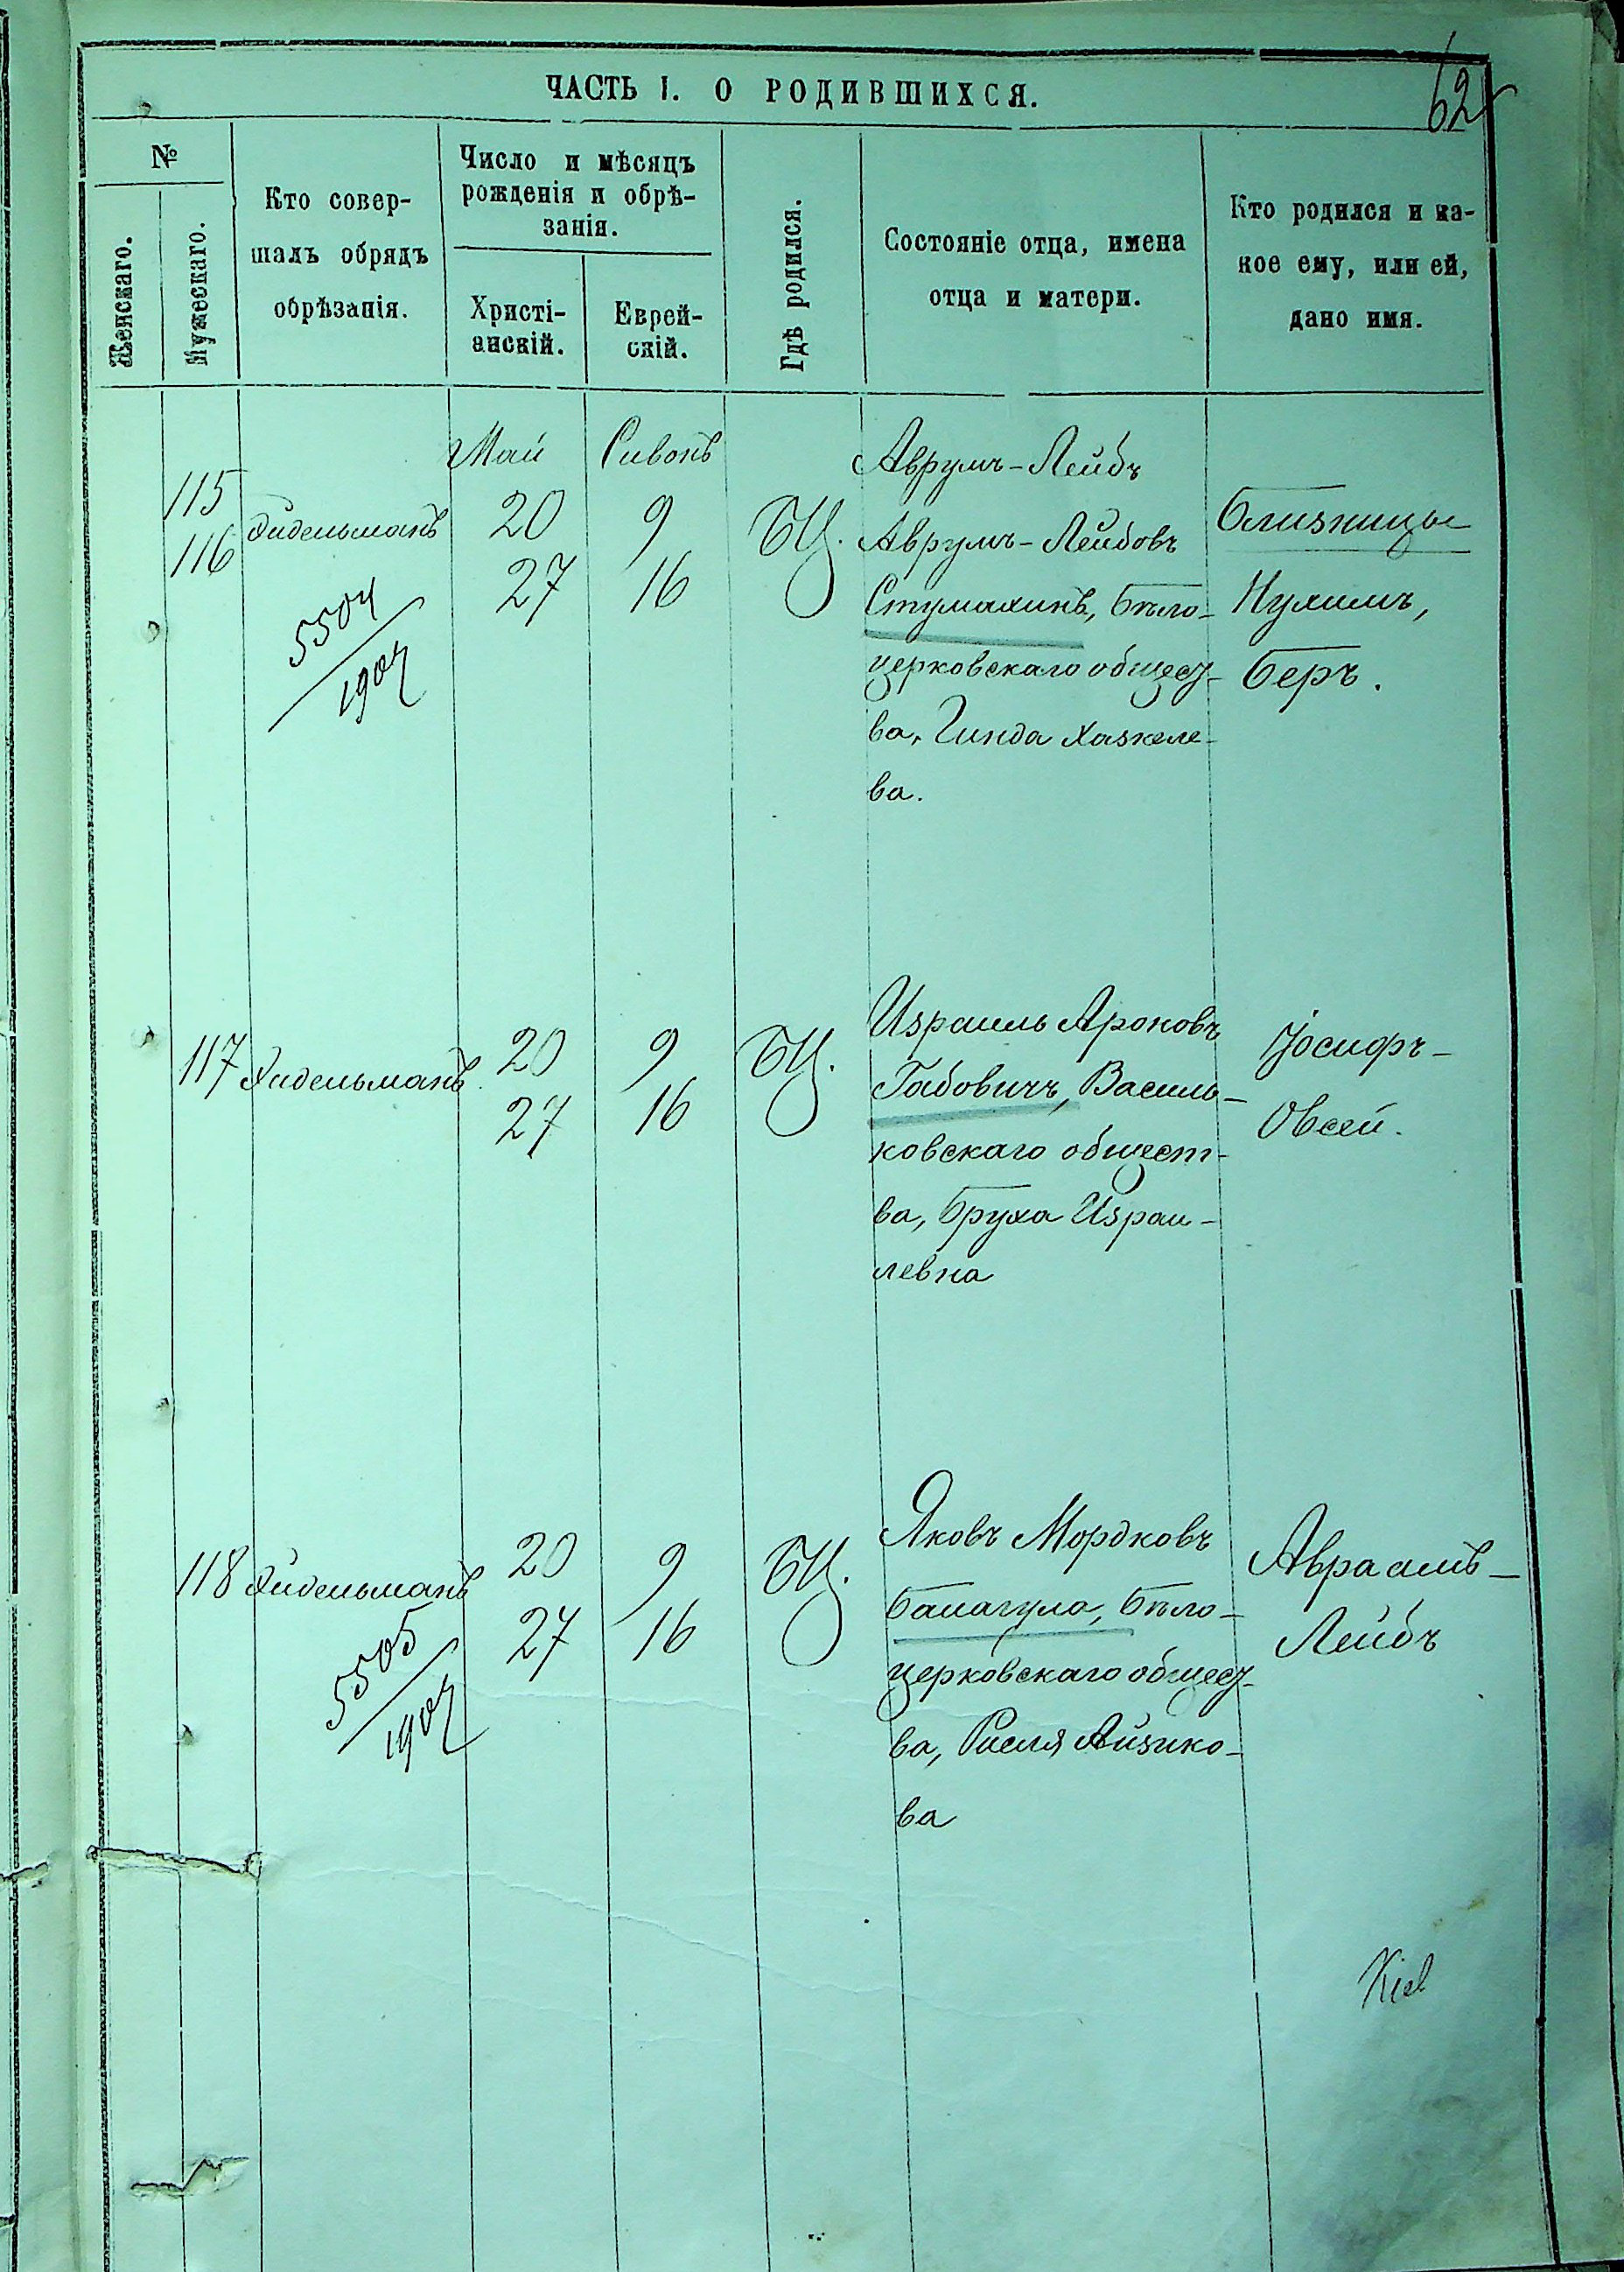 ЧАСТЬ I. О РОДИВШИХСЯ.
62
№
Женскаго.
Мужескаго.
Кто совер-
шалъ обрядъ
обрѣзанія.
Число и мѣсяцъ
рожденія и обрѣ-
занія.
Христі-
анскій.
Еврей-
скій.
Гдѣ родился.
Состояніе отца, имена
отца и матери.
Кто родился и ка-
кое ему, или ей,
дано имя.
Май Сивонъ
115
116
Эйдельманъ
20 9
27 16
БЦ.
Аврумъ-Лейбъ
Аврумъ-Лейбовъ
Стумахинъ, Бѣло-
церковскаго общест-
ва, Гинда Хазкеле-
ва.
Близницы
Нухимъ,
Беръ.
5504
1907
117 Эйдельманъ
20 9
27 16
БЦ.
Израиль Ароновъ
Габовичъ, Василь-
ковскаго общест-
ва, Бруха Изpаи-
левна
Іосифъ-
Овсей.
118 Эйдельманъ
20 9
27 16
БЦ.
Яковъ Мордковъ
Балагула, Бѣло-
церковскаго общест-
ва, Рисля Айзико-
ва
Авраамъ-
Лейбъ
5505
1907